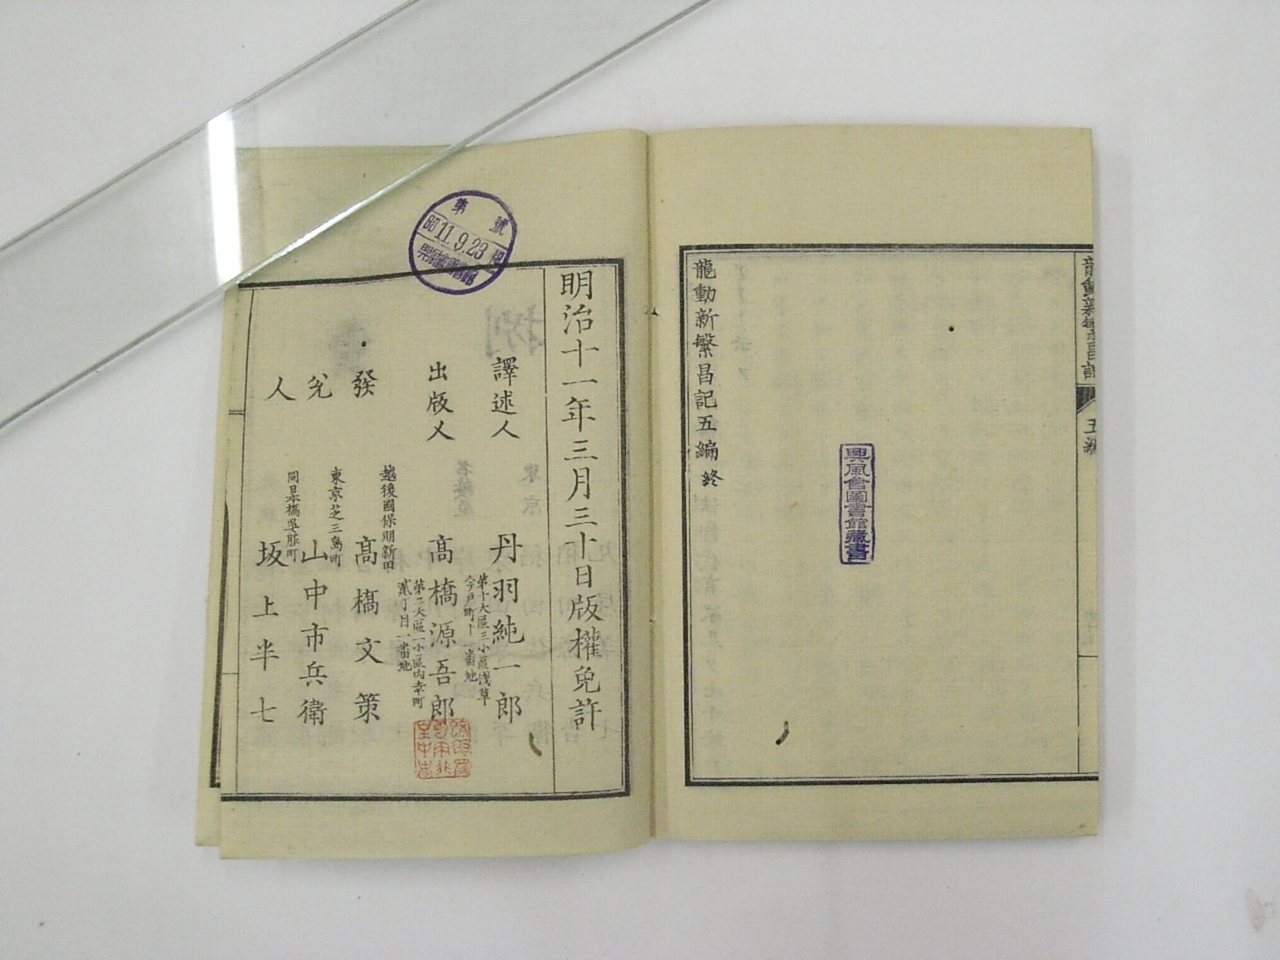 龍動新繁昌記
五編
龍動新繁昌記五編終
興風會圖書館藏書
明治十一年三月三十日版權免許
譯述人
丹羽純一郎
第十大區三小區浅草
今戸町十一番地
出版人
高橋源吾郎
第二大區一小區内幸町
貳丁目一番地
發兌人
越後國
高橋文策
東京芝三島町
山中市兵衛
同日本橋吳服町
坂上半七
第 號
昭11.9.23